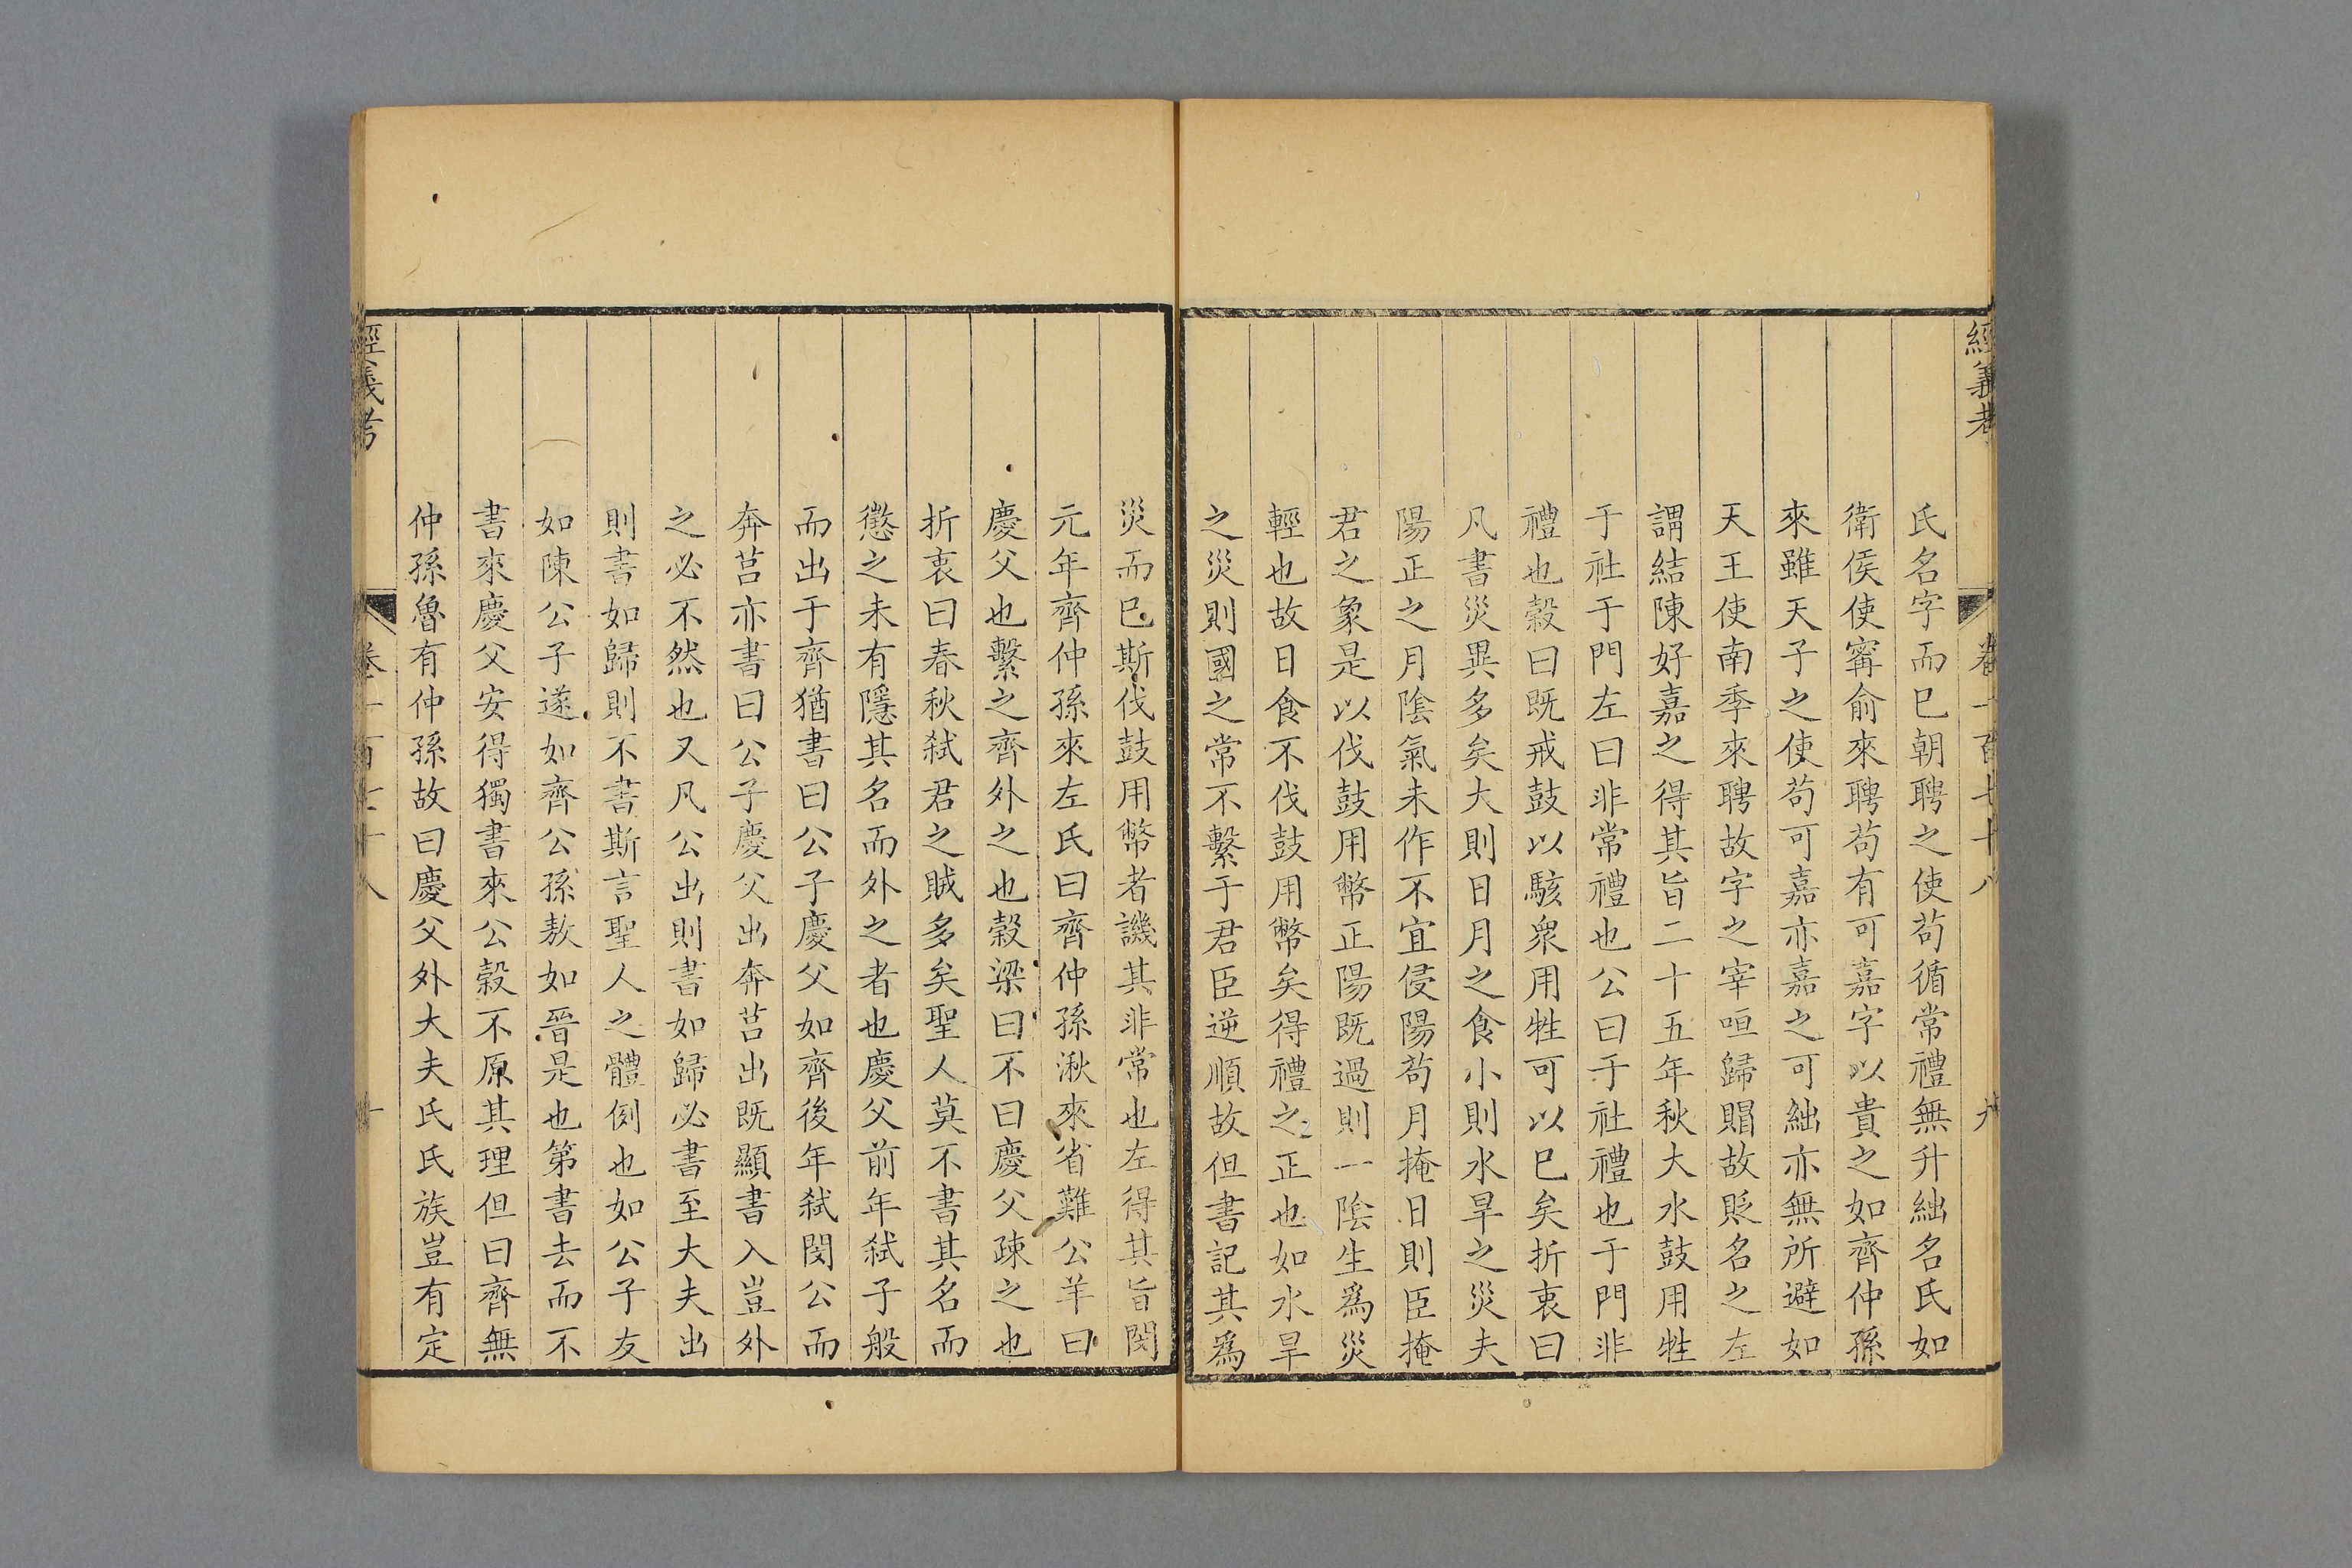 經義考
卷一百七十八
九
氏名字而已朝聘之使苟循常禮無升絀名氏如
衛侯使甯俞來聘苟有可嘉字以貴之如齊仲孫
來雖天子之使苟可嘉亦嘉之可絀亦無所避如
天王使南季來聘故字之宰咺歸賵故貶名之左
謂結陳好嘉之得其旨二十五年秋大水鼓用牲
于社于門左曰非常禮也公曰于社禮也于門非
禮也穀曰既戒鼓以駭衆用牲可以已矣折衷曰
凡書災異多矣大則日月之食小則水旱之災夫
陽正之月陰氣未作不宜侵陽苟月掩日則臣掩
君之象是以伐鼓用幣正陽既過則一陰生爲災
輕也故日食不伐鼓用幣矣得禮之正也如水旱
之災則國之常不繫于君臣逆順故但書記其爲
災而已斯伐鼓用幣者譏其非常也左得其旨閔
元年齊仲孫來左氏曰齊仲孫湫來省難公羊曰
慶父也繫之齊外之也穀梁曰不曰慶父疎之也
折衷曰春秋弑君之賊多矣聖人莫不書其名而
懲之未有隱其名而外之者也慶父前年弑子般
而出于齊猶書曰公子慶父如齊後年弑閔公而
奔莒亦書曰公子慶父出奔莒出既顯書入豈外
之必不然也又凡公出則書如歸必書至大夫出
則書如歸則不書斯言聖人之體例也如公子友
如陳公子遂如齊公孫敖如晉是也第書去而不
書來慶父安得獨書來公穀不原其理但曰齊無
仲孫魯有仲孫故曰慶父外大夫氏氏族豈有定
經義考
卷一百七十八
十